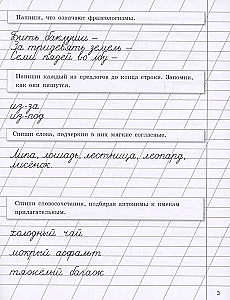 Напиши, что означают фразеологизмы.
Бить баклуши –
За тридевять земель –
Семи пядей во лбу –
Напиши каждый из предлогов до конца строки. Запомни,
как они пишутся.
из-за
из-под
Спиши слова, подчеркни в них мягкие согласные.
Липа, лошадь, лестница, леопард,
лисёнок.
Спиши словосочетания, подбирая антонимы к именам
прилагательным.
холодный чай
мокрый асфальт
тяжёлый багаж
3